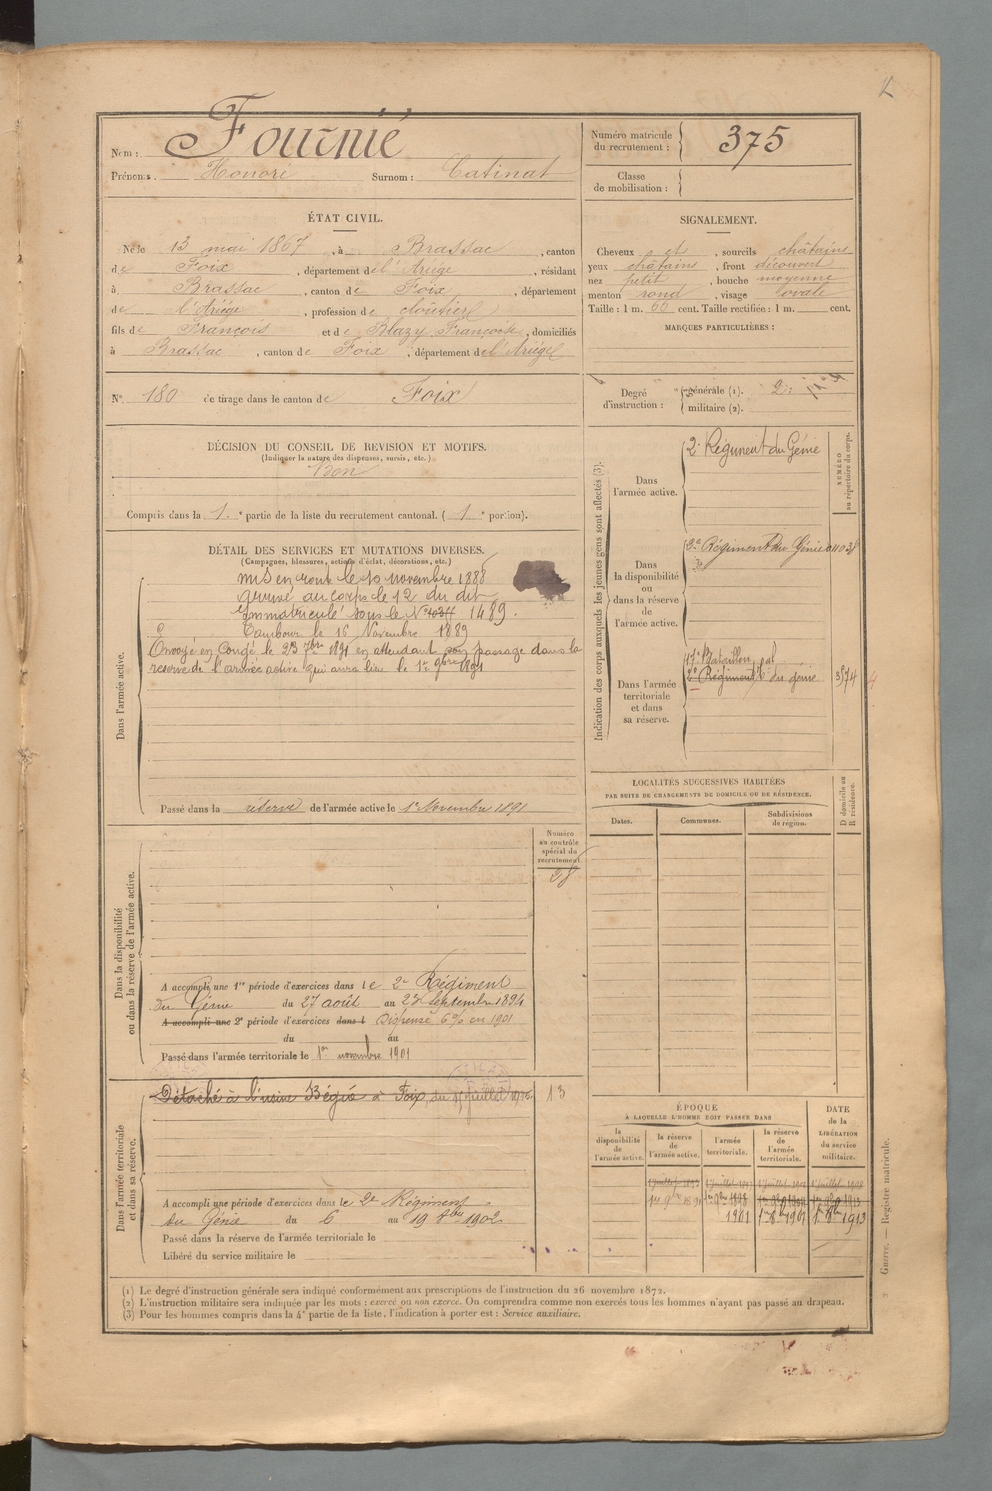 Nom : Fournié
Prénoms : Honoré Surnom : Catinat
Numéro matricule du recrutement : 375
Classe de mobilisation :
ÉTAT CIVIL.
Né le 13 mai 1867, à Brassac, canton
de Foix, département de l'Ariège, résidant
à Brassac, canton de Foix, département
de l'Ariège, profession de cloutier
fils de François et de Blazy Françoise, domiciliés
à Brassac, canton de Foix, département de l'Ariège
SIGNALEMENT.
Cheveux et, sourcils châtains
yeux châtains, front découvert
nez petit, bouche moyenne
menton rond, visage ovale
Taille : 1 m. 66 cent. Taille rectifiée : 1 m. cent.
MARQUES PARTICULIÈRES :
N° 180 de tirage dans le canton de Foix
Degré d'instruction : générale (1). 2
militaire (2).
DÉCISION DU CONSEIL DE REVISION ET MOTIFS.
(Indiquer la nature des dispenses, sursis, etc.)
Bon
Compris dans la 1e partie de la liste du recrutement cantonal. (1e portion).
DÉTAIL DES SERVICES ET MUTATIONS DIVERSES.
(Campagnes, blessures, actions d'éclat, décorations, etc.)
Dans l'armée active.
mis en route le 10 novembre 1888
arrivé au corps le 12 du dit
Immatriculé sous le N° 1489.
Tambour le 16 Novembre 1889
Envoyé en Congé le 23 7bre 1891 en attendant son passage dans la
réserve de l'armée active qui aura lieu le 1er 9bre 1891
Passé dans la réserve de l'armée active le 1er Novembre 1891
Indication des corps auxquels les jeunes gens sont affectés (3).
NUMÉRO au répertoire du corps.
Dans l'armée active.
2e Régiment du Génie
Dans la disponibilité ou dans la réserve de l'armée active.
2e Régiment du Génie
Dans l'armée territoriale et dans sa réserve.
17e Bataillon
2e Régiment du génie
LOCALITÉS SUCCESSIVES HABITÉES
PAR SUITE DE CHANGEMENTS DE DOMICILE OU DE RÉSIDENCE.
Dates. Communes. Subdivisions de région. D domicile ou R résidence.
Numéro au contrôle spécial du recrutement.
28
Dans la disponibilité ou dans la réserve de l'armée active.
A accompli une 1re période d'exercices dans le 2e Régiment
du Génie du 27 août au 23 Septembre 1894
A accompli une 2e période d'exercices dans l Dispensé en 1901
du au
Passé dans l'armée territoriale le 1er novembre 1901
Dans l'armée territoriale et dans sa réserve.
Détaché à l'usine Bégué à Foix, du 17 juillet 13
A accompli une période d'exercices dans le 2e Régiment
du Génie du 6 au 19 1902
Passé dans la réserve de l'armée territoriale le
Libéré du service militaire le
ÉPOQUE
À LAQUELLE L'HOMME DOIT PASSER DANS
DATE de la LIBÉRATION du service militaire.
la disponibilité de l'armée active. la réserve de l'armée active. l'armée territoriale. la réserve de l'armée territoriale.
1er 9bre 1891 1er 9bre 1898
1901 1er 9bre 1913
(1) Le degré d'instruction générale sera indiqué conformément aux prescriptions de l'instruction du 26 novembre 1872.
(2) L'instruction militaire sera indiquée par les mots : exercé ou non exercé. On comprendra comme non exercés tous les hommes n'ayant pas passé au drapeau.
(3) Pour les hommes compris dans la 4e partie de la liste, l'indication à porter est : Service auxiliaire.
Guerre. — Registre matricule.